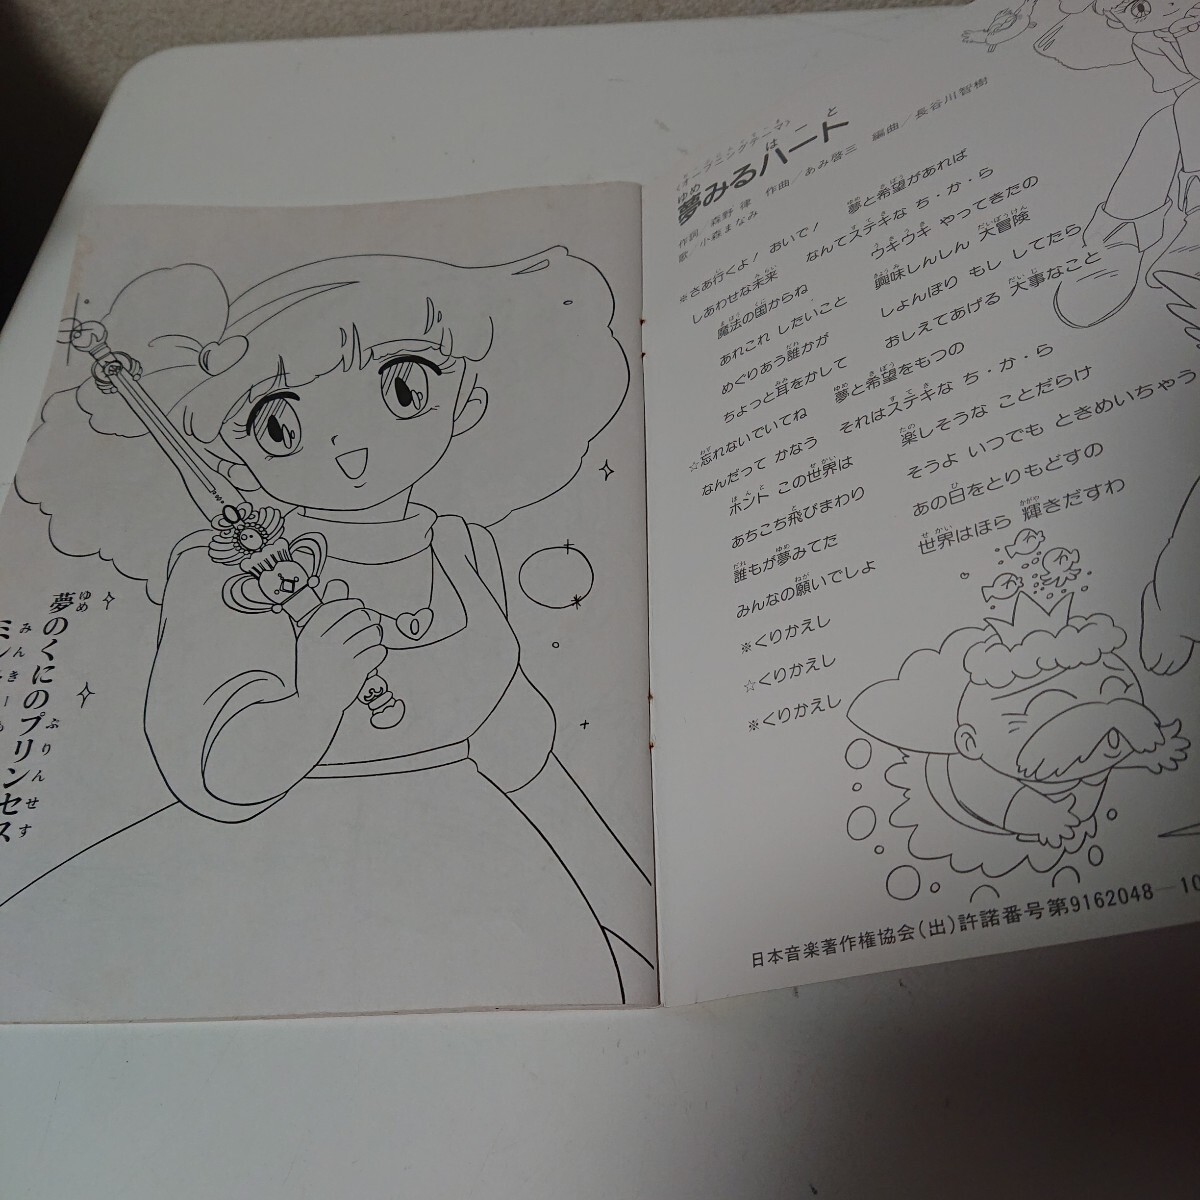 〈オープニングテーマ〉
夢みるハート
作詞／森野 律 作曲／あみ啓三 編曲／長谷川智樹
歌／小森まなみ
※さあ行くよ！ おいで！ 夢と希望があれば
しあわせな未来 なんてステキな ち・か・ら
魔法の国からね ウキウキ やってきたの
あれこれ したいこと 興味しんしん 大冒険
めぐりあう誰かが しょんぼり もし してたら
ちょっと耳をかして おしえてあげる 大事なこと
☆忘れないでいてね 夢と希望をもつの
なんだって かなう それはステキな ち・か・ら
ホント この世界は 楽しそうな ことだらけ
あちこち飛びまわり そうよ いつでも ときめいちゃう
誰もが夢みてた あの日をとりもどすの
みんなの願いでしょ 世界はほら 輝きだすわ
※くりかえし
☆くりかえし
※くりかえし
日本音楽著作権協会(出)許諾番号第9162048－10
夢のくにのプリンセス